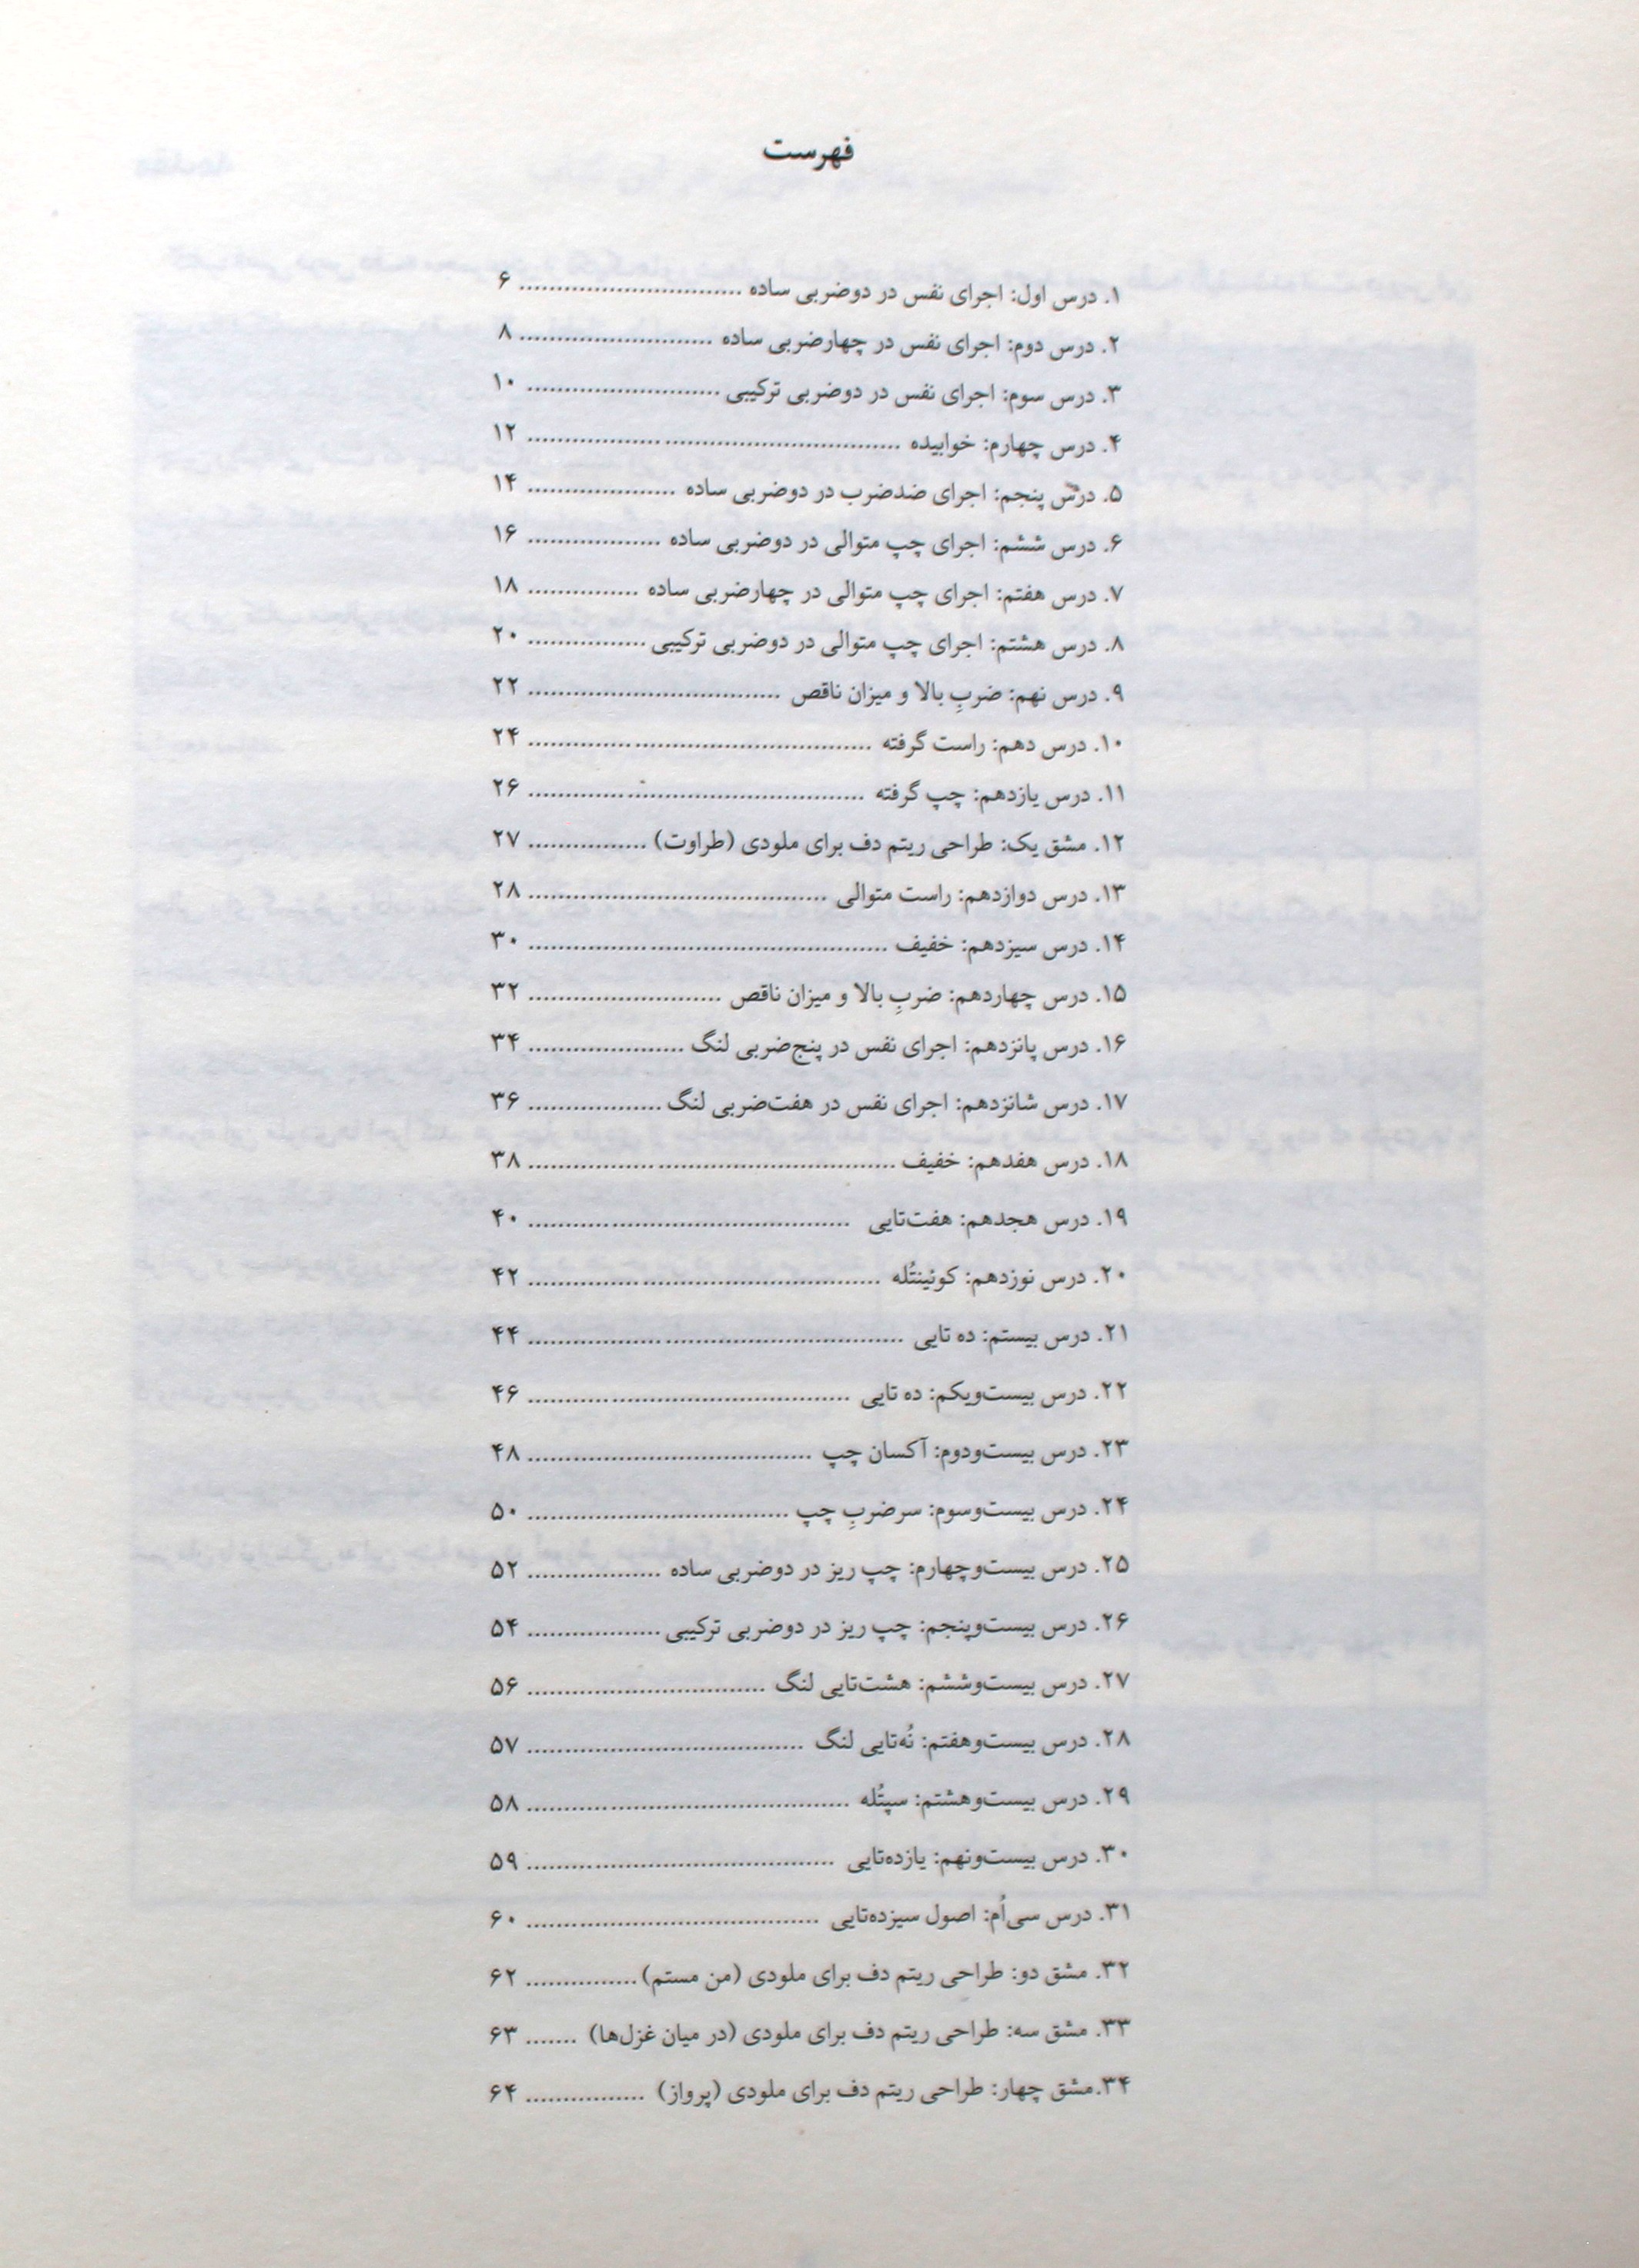 فهرست
۱. درس اول: اجرای نفس در دوضربی ساده .............................. ۶
۲. درس دوم: اجرای نفس در چهارضربی ساده .......................... ۸
۳. درس سوم: اجرای نفس در دوضربی ترکیبی .......................... ۱۰
۴. درس چهارم: خوابیده .................................................. ۱۲
۵. درس پنجم: اجرای ضدضرب در دوضربی ساده .................... ۱۴
۶. درس ششم: اجرای چپ متوالی در دوضربی ساده .................. ۱۶
۷. درس هفتم: اجرای چپ متوالی در چهارضربی ساده ............... ۱۸
۸. درس هشتم: اجرای چپ متوالی در دوضربی ترکیبی ................ ۲۰
۹. درس نهم: ضربِ بالا و میزان ناقص .................................. ۲۲
۱۰. درس دهم: راست گرفته .............................................. ۲۴
۱۱. درس یازدهم: چپ گرفته ............................................. ۲۶
۱۲. مشق یک: طراحی ریتم دف برای ملودی (طراوت) ................ ۲۷
۱۳. درس دوازدهم: راست متوالی ........................................ ۲۸
۱۴. درس سیزدهم: خفیف ................................................ ۳۰
۱۵. درس چهاردهم: ضربِ بالا و میزان ناقص .......................... ۳۲
۱۶. درس پانزدهم: اجرای نفس در پنج‌ضربی لنگ ..................... ۳۴
۱۷. درس شانزدهم: اجرای نفس در هفت‌ضربی لنگ .................. ۳۶
۱۸. درس هفدهم: خفیف ................................................. ۳۸
۱۹. درس هجدهم: هفت‌تایی ........................................... ۴۰
۲۰. درس نوزدهم: کوئینتُله ............................................... ۴۲
۲۱. درس بیستم: ده تایی .................................................. ۴۴
۲۲. درس بیست‌ویکم: ده تایی ........................................... ۴۶
۲۳. درس بیست‌ودوم: آکسان چپ ...................................... ۴۸
۲۴. درس بیست‌وسوم: سرضربِ چپ ................................... ۵۰
۲۵. درس بیست‌وچهارم: چپ ریز در دوضربی ساده .................. ۵۲
۲۶. درس بیست‌وپنجم: چپ ریز در دوضربی ترکیبی .................. ۵۴
۲۷. درس بیست‌وششم: هشت‌تایی لنگ ................................ ۵۶
۲۸. درس بیست‌وهفتم: نُه‌تایی لنگ ..................................... ۵۷
۲۹. درس بیست‌وهشتم: سپتُله ........................................... ۵۸
۳۰. درس بیست‌ونهم: یازده‌تایی ......................................... ۵۹
۳۱. درس سی‌اُم: اصول سیزده‌تایی ....................................... ۶۰
۳۲. مشق دو: طراحی ریتم دف برای ملودی (من مستم) ............... ۶۲
۳۳. مشق سه: طراحی ریتم دف برای ملودی (در میان غزل‌ها) ....... ۶۳
۳۴.مشق چهار: طراحی ریتم دف برای ملودی (پرواز) ................ ۶۴